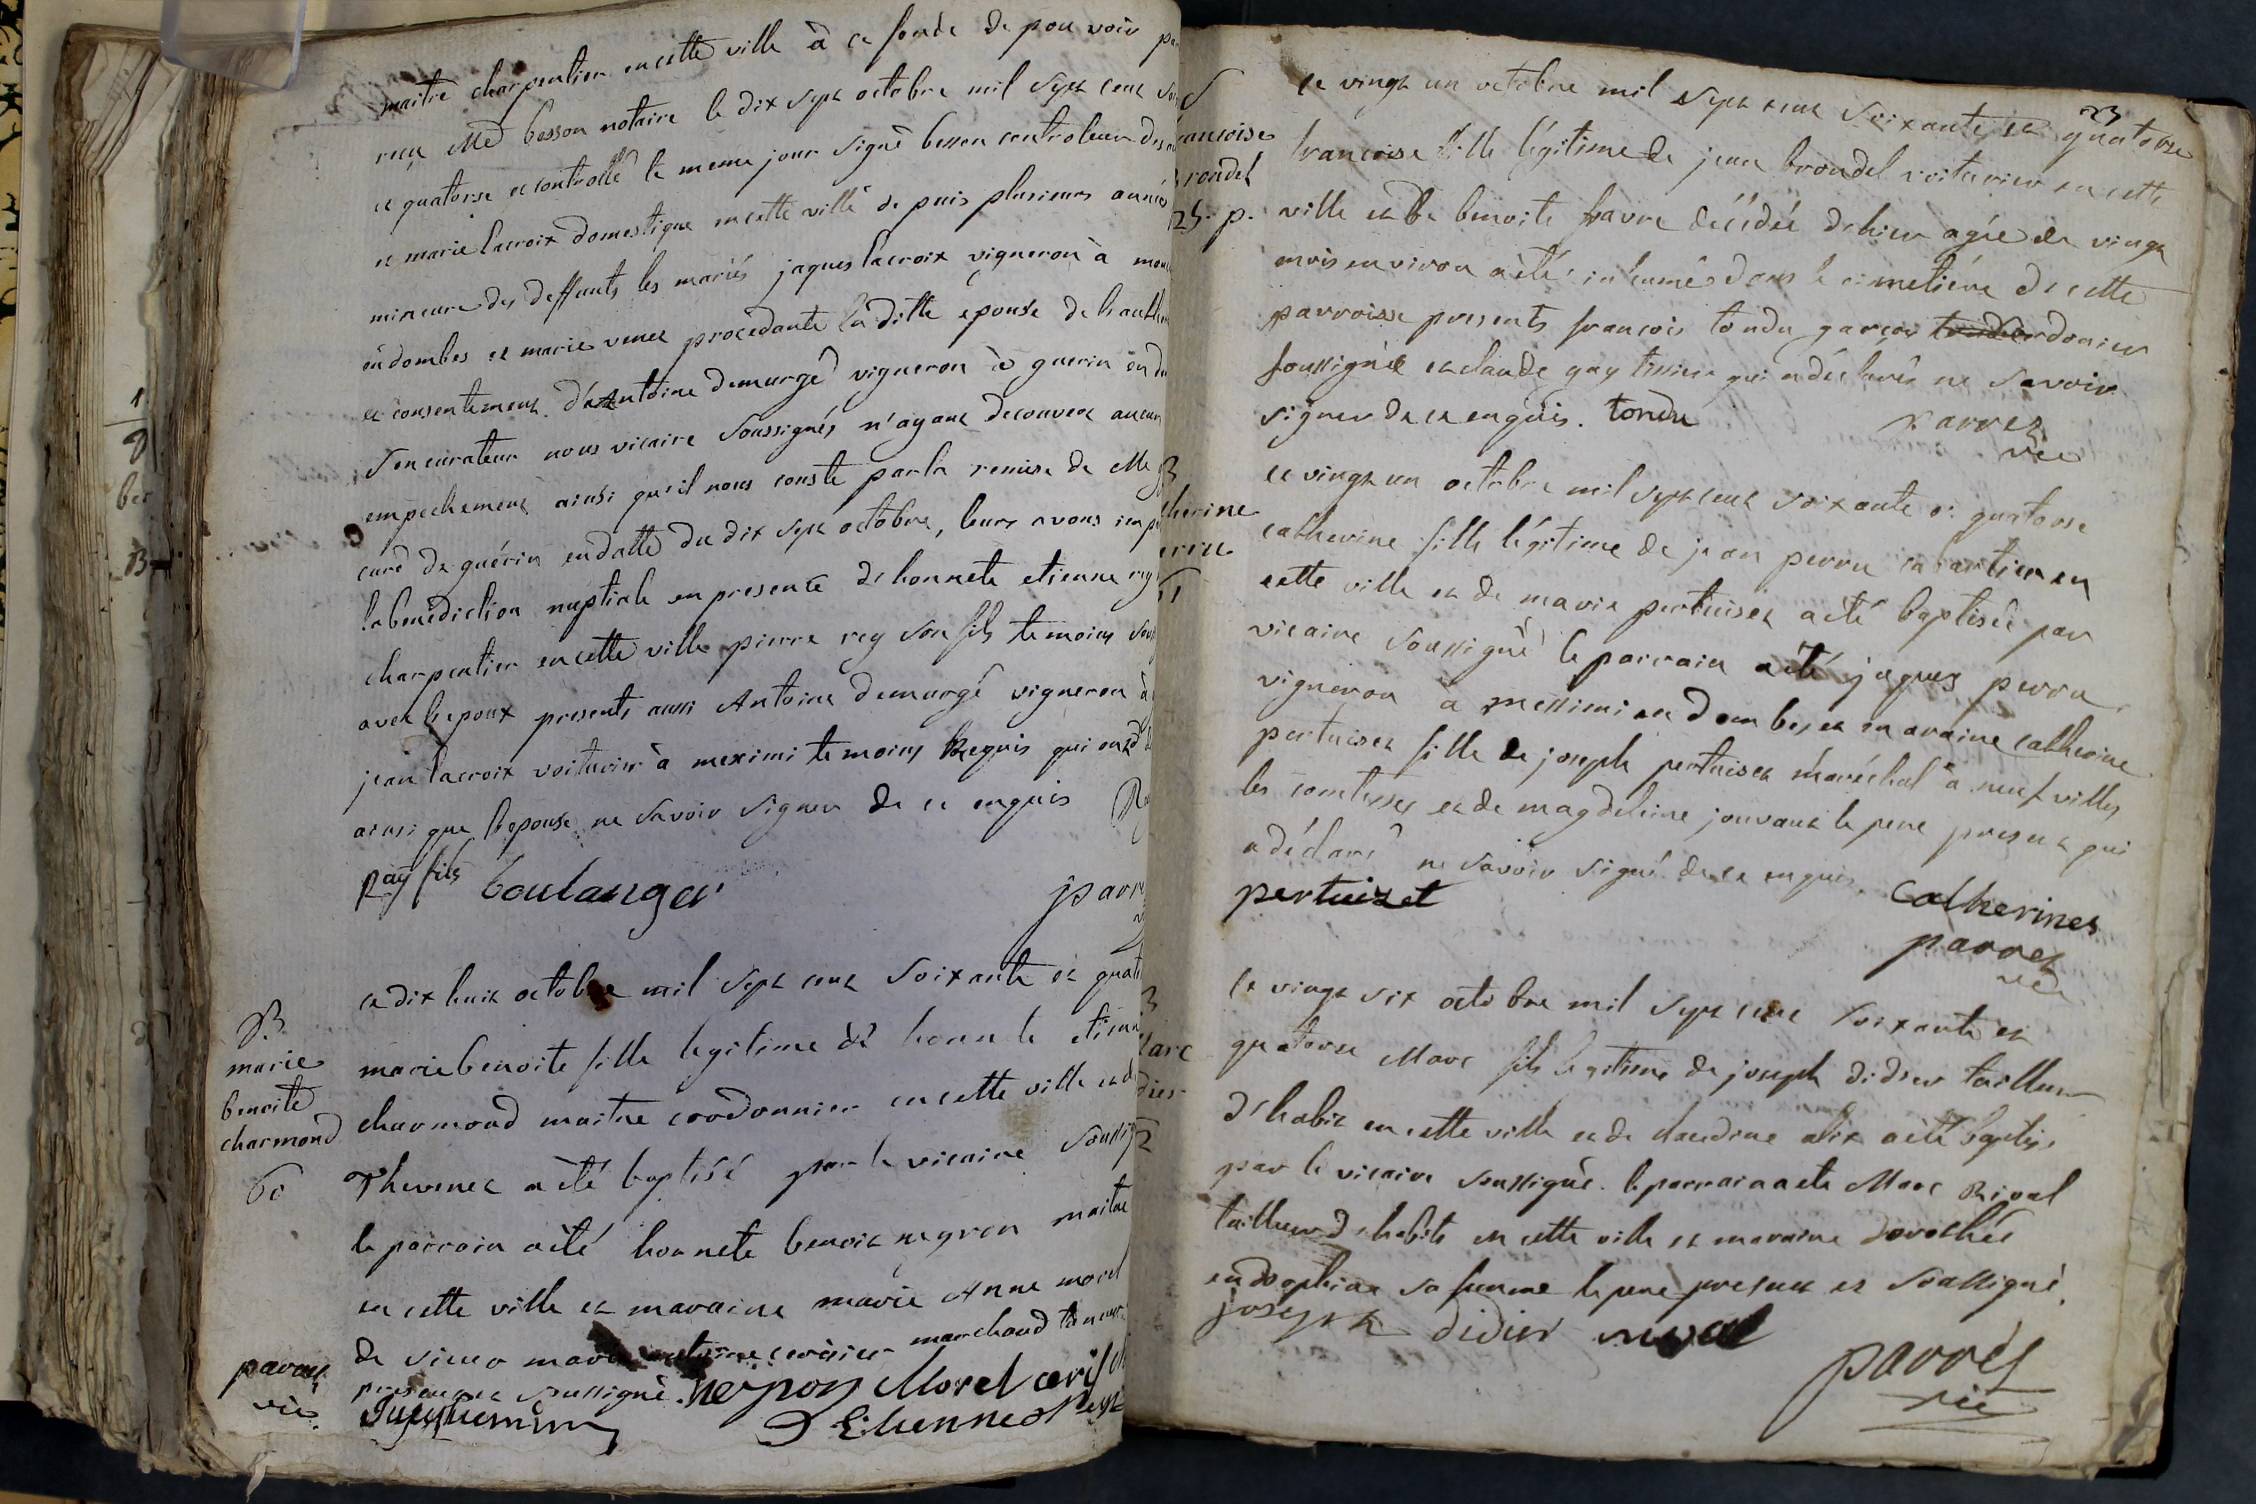 maitre charpentier en cette ville à ce fondé de pouvoir
reçu Me besson notaire le dix sept octobre mil sept cent
et quatorse et controllé le meme jour signé besson controleur des
et marie lacroix domestique en cette ville depuis plusieurs années
mineure des deffunts les mariés jaques lacroix vigneron à
en dombes et marie venet procedante laditte épouse de l'authorité
et consentement d'Antoine demurgé vigneron à guerin en
son curateur nous vicaire soussignés n'ayant decouvert aucun
empechement ainsi qu'il nous conste par la remise de Mr
curé de guérin en datte du dix sept octobre, leurs avons
la benédiction nuptiale en presence de honnete etienne rey
charpentier en cette ville pierre rey son fils temoins
avec l'epoux presents aussi Antoine demurgé vigneron à
jean lacroix voiturier à meximi temoins Requis qui ont
ainsi que l'epouse ne savoir signer de ce enquis
Ray fils boulanger
parr
ce dix huit octobre mil sept cent soixante et
B.
marie
benoite
charmond
60
marie benoite fille legitime de honnete etienne
charmond maitre cordonnier en cette ville et de
Thevenet a été baptisé par le vicaire
le parrain a été honnete benoit maitre
en cette ville et maraine marie Anne morel
de sieur marchand
present et soussigné. Morel
parret
vic.
23
S
rancoise
rondel
25. p.
ce vingt un octobre mil sept cent soixante et quatorse
francoise fille légitime de jean brondel voiturier en cette
ville et de benoite favre décédée d'hier agée de vingt
mois environ a été inhumé dans le cimetiére de cette
parroisse presents francois tondu garcon cordonier
soussigné et claude gay tissier qui a déclarés ne savoir
signer de ce enquis. tondu
parret
vic
B
therine
erru
61
ce vingt un octobre mil sept cent soixante et quatorse
catherine fille légitime de jean perru cabartier en
cette ville et de marie pertuiset a été baptisée par
vicaire soussigné le parrain a été jaques perru
vigneron a messimi en dombes et maraine catherine
pertuiset fille de joseph pertuiset maréchal à neufville
les comtesses et de magdeleine jouvant le pere present qui
a déclaré ne savoir signé de ce enquis. Catherines
pertuizet
parret
vic
B
larc
dier
62
ce vingt six octobre mil sept cent soixante et
quatorse Marc fils legitime de joseph didier tailleur
d'habit en cette ville et de claudine alix a été baptisé
par le vicaire soussigné. le parrain a ete Marc Rival
tailleur d'habits en cette ville et maraine dorothée
sa femme le pere present et soussigné.
joseph didier rival
parret
vic